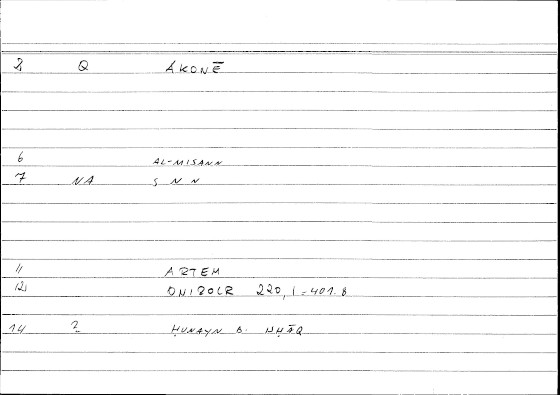 2 Q ÁKONĒ
6 AL-MISANN
7 NA S N N
11 ARTEM
12 220, 1-401.8
14 2 ḤUNAYN B.